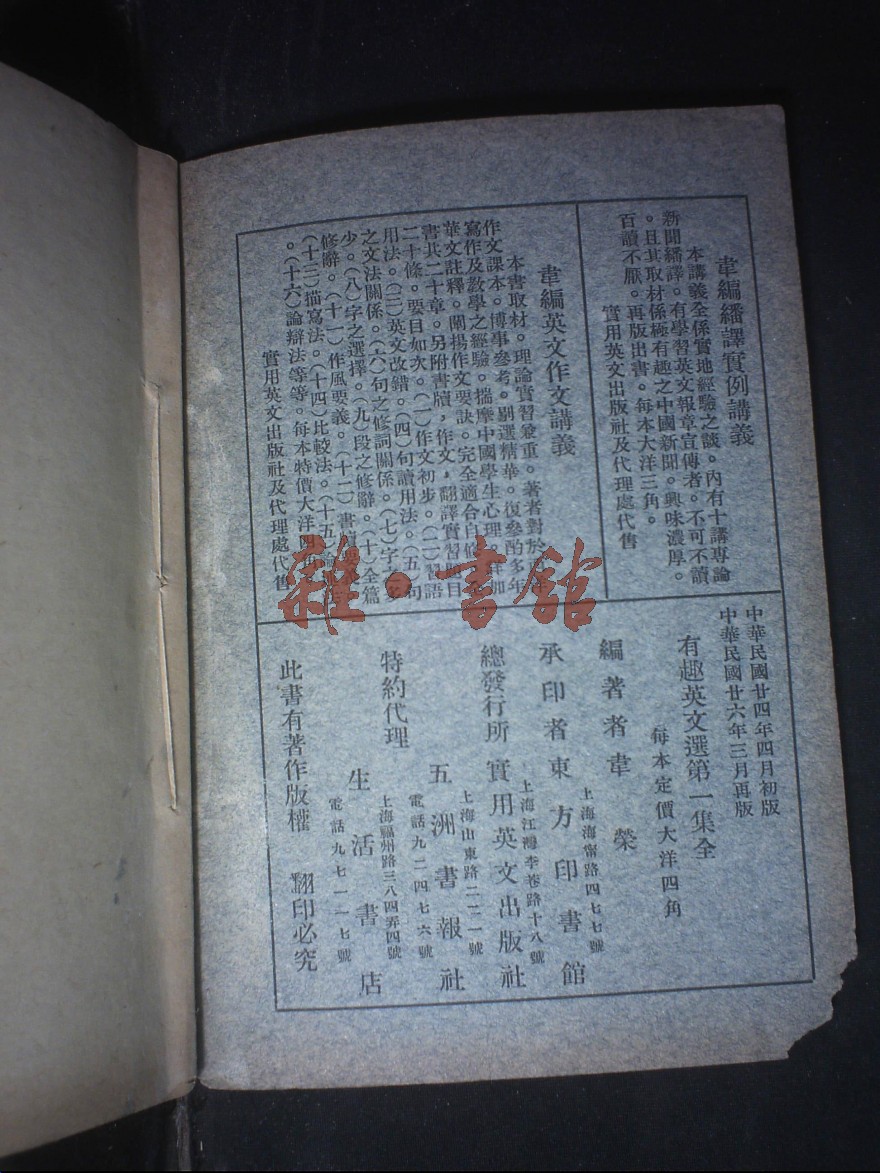 韋編繙譯實例講義
本講義全係實地經驗之談。內有十講專論
新聞繙譯。有學習英文報章宣傳者。不可不讀
。且其取材係極有趣之中國新聞。興味濃厚。
百讀不厭。再版出書。每本大洋三角。
實用英文出版社及代理處代售
韋編英文作文講義
本書取材。理論實習兼重。著者對於
作文課本。博事參考。剔選精華。復參酌多年
寫作及教學之經驗。揣摩中國學生心理。
華文註釋。闡揚作文要訣。完全適合自修
書共二十章。另附書牘，作文，翻譯實習題目
二十條。要目如次。（一）作文初步。（二）習語
用法。（三）英文改錯。（四）句讀用法。（五）句
之文法關係。（六）句之修詞關係。（七）字之多
少。（八）字之選擇。（九）段之修辭。（十）全篇
修辭。（十一）作風要義。（十二）書牘
（十三）描寫法。（十四）比較法。（十五）
。（十六）論辯法等等。每本特價大洋四角
實用英文出版社及代理處代售
中華民國廿四年四月初版
中華民國廿六年三月再版
有趣英文選第一集全
每本定價大洋四角
編著者韋榮
上海海甯路四七七號
承印者東方印書館
上海江灣李巷路十八號
總發行所實用英文出版社
上海山東路二二一號
五洲書報社
電話九二四七六號
特約代理
上海福州路三八四弄四號
生活書店
電話九七一一七號
此書有著作版權 翻印必究
雜·書館